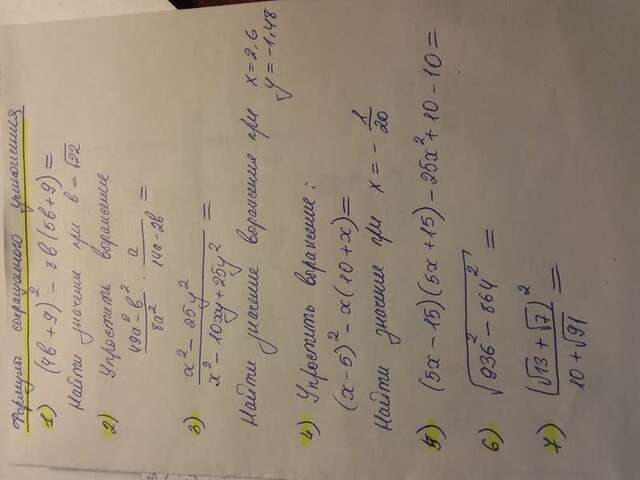 Формулы сокращённого умножения
1) (4в + 9)² - 8в(5в+9) =
Найти значение при в = √22
2) Упростить выражение
(49a² - в²)/(8a²) · a/(14a-2в) =
3) (x² - 25y²)/(x² - 10xy + 25y²) =
Найти значение выражения при x = 2,6
y = -1,48
4) Упростить выражение:
(x-5)² - x(10+x) =
Найти значение при x = - 1/20
5) (5x - 15)(5x + 15) - 25x² + 10 - 10 =
6) √(936² - 864²) =
7) (√13 + √7)²/(10 + √91) =